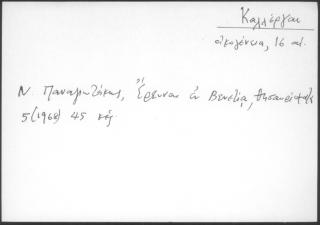 Καλλέργαι
οἰκογένεια, 16 αἰ.
Ν. Παναγιωτάκης, Ἔρευναι ἐν Βενετίᾳ, Θησαυρίσματα
5 (1968) 45 κἑ.